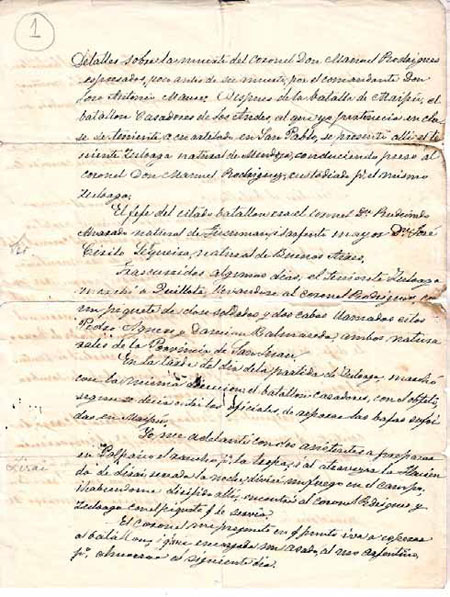 1
Detalles sobre la muerte del coronel Don Manuel Rodrigues
espresados, poco antes de su muerte, por el comandante Don
José Antonio Maure. Despues de la batalla de Maipú, el
batallon Casadores de los Andes, al que yo pertenecia en cla-
se de teniente, acuartelado en San Pablo, se presentó alli el te-
niente Zuloaga natural de Mendoza, conduciendo preso al
coronel Don Manuel Rodriguez, custodiado pr. el mismo
Zuloaga.
El jefe del citado batallon era el coronel Dn. Rudecindo
Alvarado natural de y sarjento mayor Dn. José
Cirilo natural de Buenos Aires.
Trascurridos algunos dias, el teniente Zuloaga
marchó a Quillota, llevandose al coronel Rodrigues, con
un piquete de doce soldados y dos cabos llamados estos
Pedro y Damian Balmaseda, ambos natura-
rales de la Provincia de San Juan.
En la tarde del dia de la partida de Zuloaga, marchó
con la misma direccion el batallon casadores, con el objeto
segun se decia entre los oficiales de reponer las bajas sufri-
das en Maipú.
Yo me adelanté con dos asistentes a preparar
en Polpaico el rancho pa. la tropa; al alcanzar la Hacien-
da de cerrada la noche, divisé un fuego en el campo,
i habiendome dirijido alli, encontré al coronel Rodrigues y
Zuloaga con el piquete q. le servia.
El coronel me preguntó en q. punto iva a esperar
al batallon, i que me un asado, al uso arjentino,
pa. almorzar al siguiente dia.